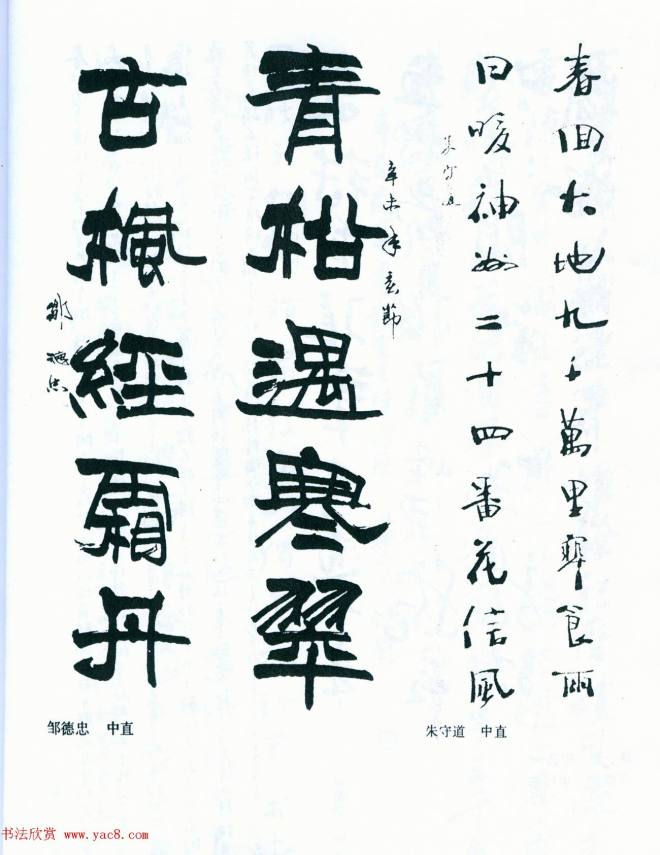 春回大地九千萬里寒食雨
日暖神州二十四番花信風
朱守道
辛未年春節
青松遇寒翠
古楓經霜丹
鄒德忠
邹德忠 中直
朱守道 中直
书法欣赏 www.yac8.com